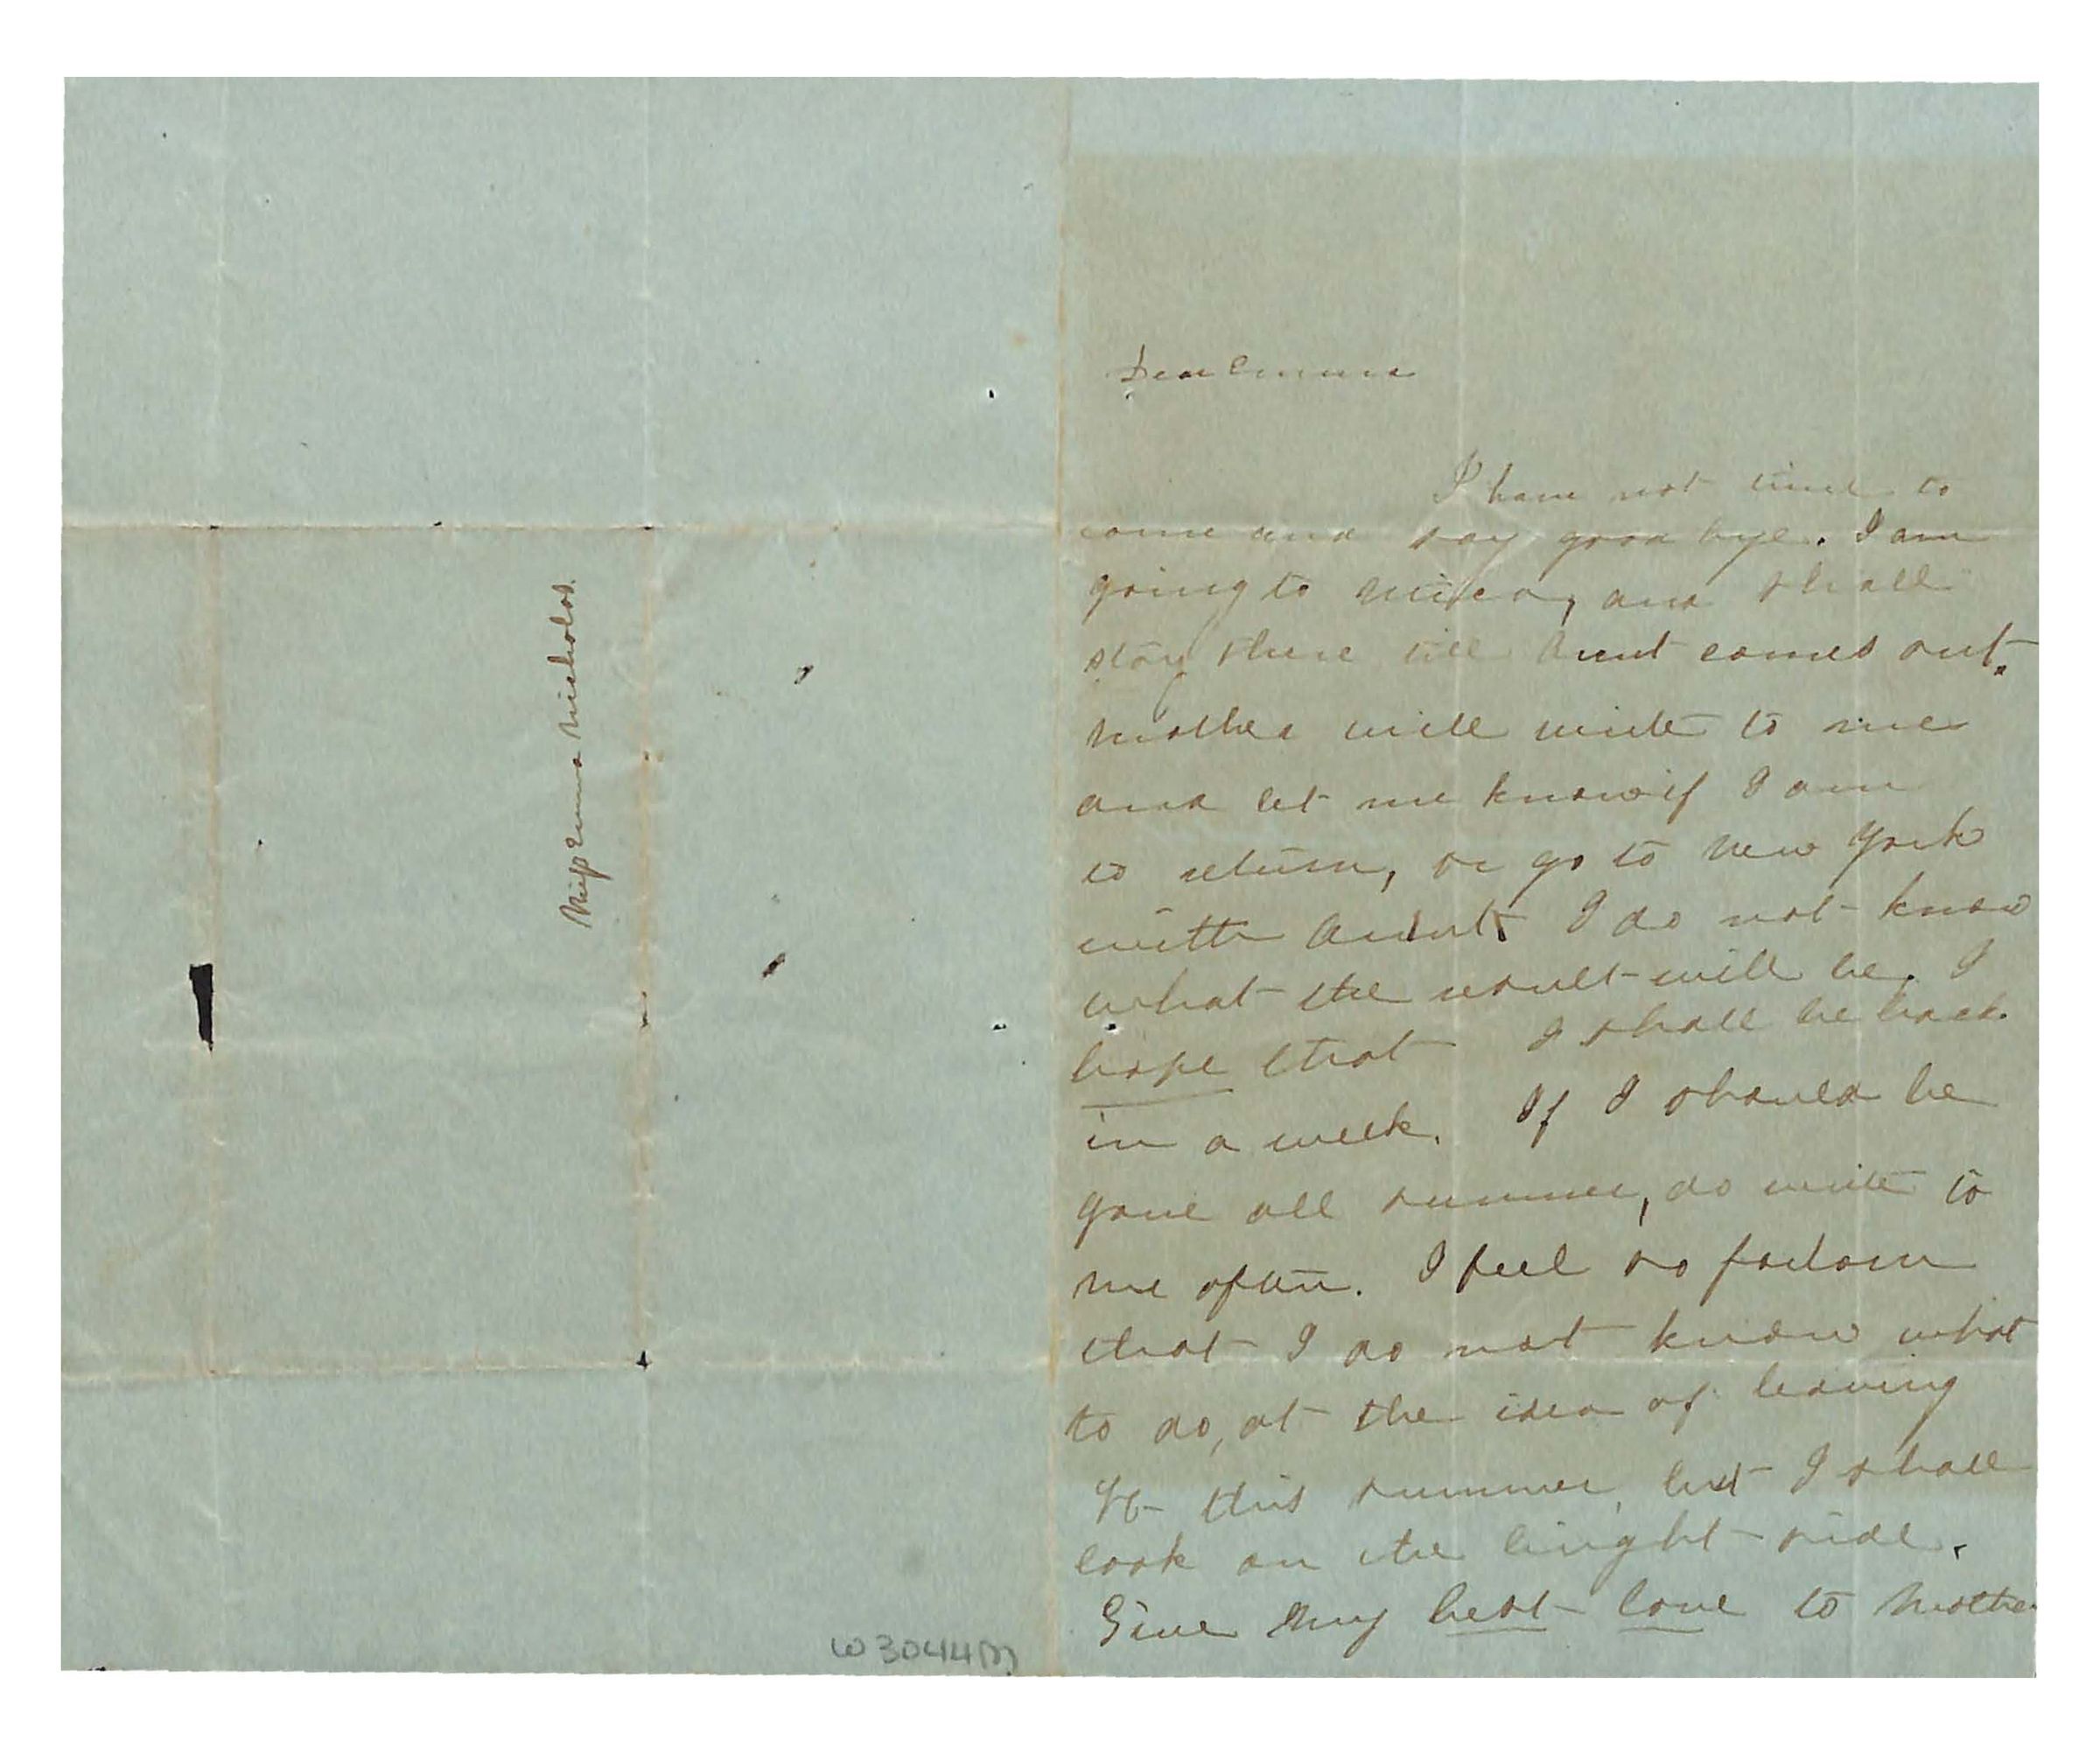 Miss Emma Nicholas.
W3044(7)
Dear Emma
I have not time to
come and say good bye. I am
going to Utica, and shall
stay there till Aunt comes out.
Mother will write to me
and let me know if I am
to return, or go to New York
with Aunt. I do not know
what the result will be. I
hope that I shall be back
in a week. If I should be
gone all summer, do write to
me often. I feel so forlorn
that I do not know what
to do, at the idea of leaving
this summer, but I shall
look on the bright side.
Give my best love to Mother